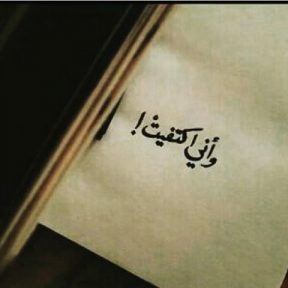 وأني اكتفيتُ !